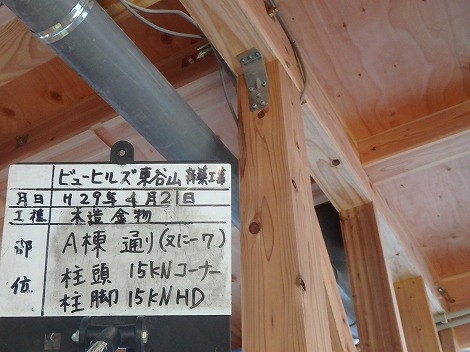 ビューヒルズ東谷山 新築工事
月日 H29年 4月21日
工種 木造金物
部位 A棟 通り(又に-7)
柱頭 15KNコーナー
柱脚 15KNHD